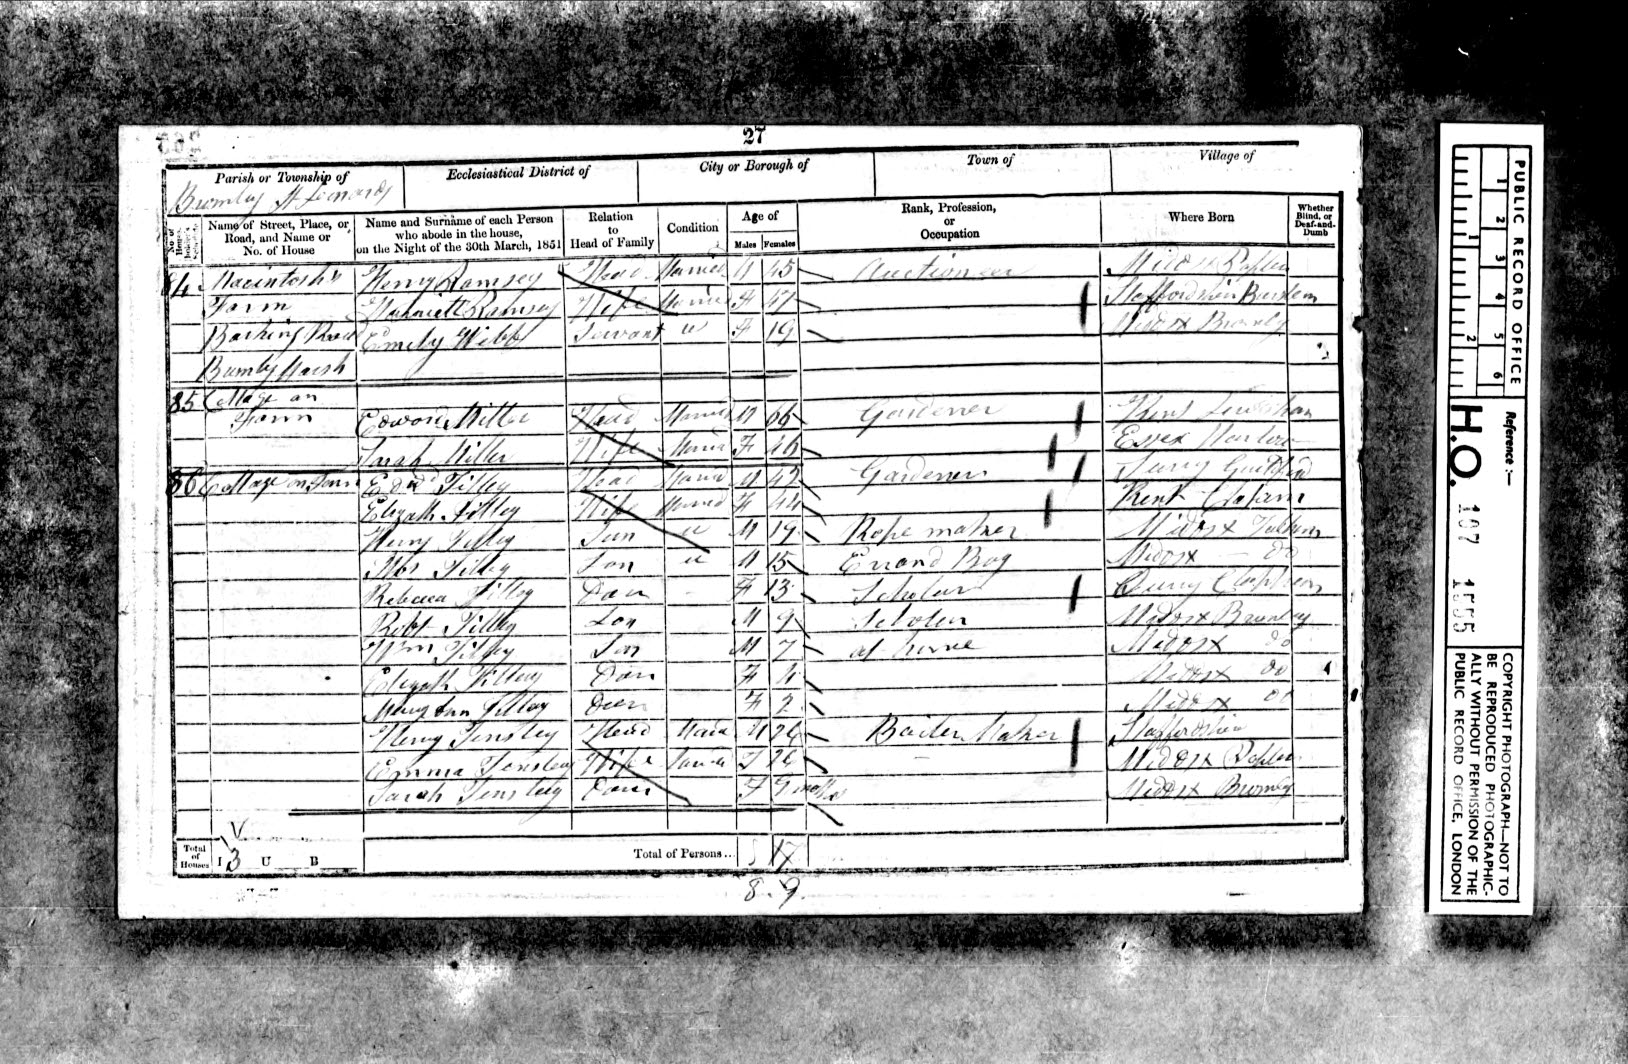 27
Parish or Township of
Ecclesiastical District of
City or Borough of
Town of
Village of
Bromley St Leonards
Name of Street, Place, or Road, and Name or No. of House
Name and Surname of each Person who abode in the house, on the Night of the 30th March, 1851
Relation to Head of Family
Condition
Age of
Males Females
Rank, Profession, or Occupation
Where Born
Whether Blind, or Deaf-and-Dumb
84 Macintosh's Henry Ramsey Head Married M 45 Auctioneer Middsx Poplar
Farm Harriett Ramsey Wife Married F 47 Staffordshire Burslem
Barking Road Emily Webb Servant u F 19 Middsx Bromley
Bromley Marsh
85 Cottage on
Farm Edward Miller Head Married M 66 Gardener Kent Lewisham
Sarah Miller Wife Married F 46 Essex Harlow
86 Cottage on Farm Edwd Tilley Head Married M 42 Gardener Surry Guildford
Elizath Tilley Wife Married F 44 Kent
Henry Tilley Son u M 17 Rope maker Middsx
Tilley Son u M 15 Errand Boy Middsx - do
Rebecca Tilley Daur F 13 Scholar Surry Clapham
Robt Tilley Son M 9 Scholar Middsx Bromley
Wm Tilley Son M 7 at home Middsx do
Elizath Tilley Daur F 4 Middsx do
Mary Ann Tilley Daur F 2 Middsx do
Henry Tinsley Head Mard M 26 Boiler Maker Staffordshire
Emma Tinsley Wife Mard F 26 Middsx Poplar
Sarah Tinsley Daur F 9 mths Middsx Bromley
Total of Houses I 3 U B
Total of Persons... 17
8 . 9
PUBLIC RECORD OFFICE
1 2 3 4 5 6
1 2
Reference :-
H.O. 107 1555
COPYRIGHT PHOTOGRAPH—NOT TO
BE REPRODUCED PHOTOGRAPHIC-
ALLY WITHOUT PERMISSION OF THE
PUBLIC RECORD OFFICE, LONDON